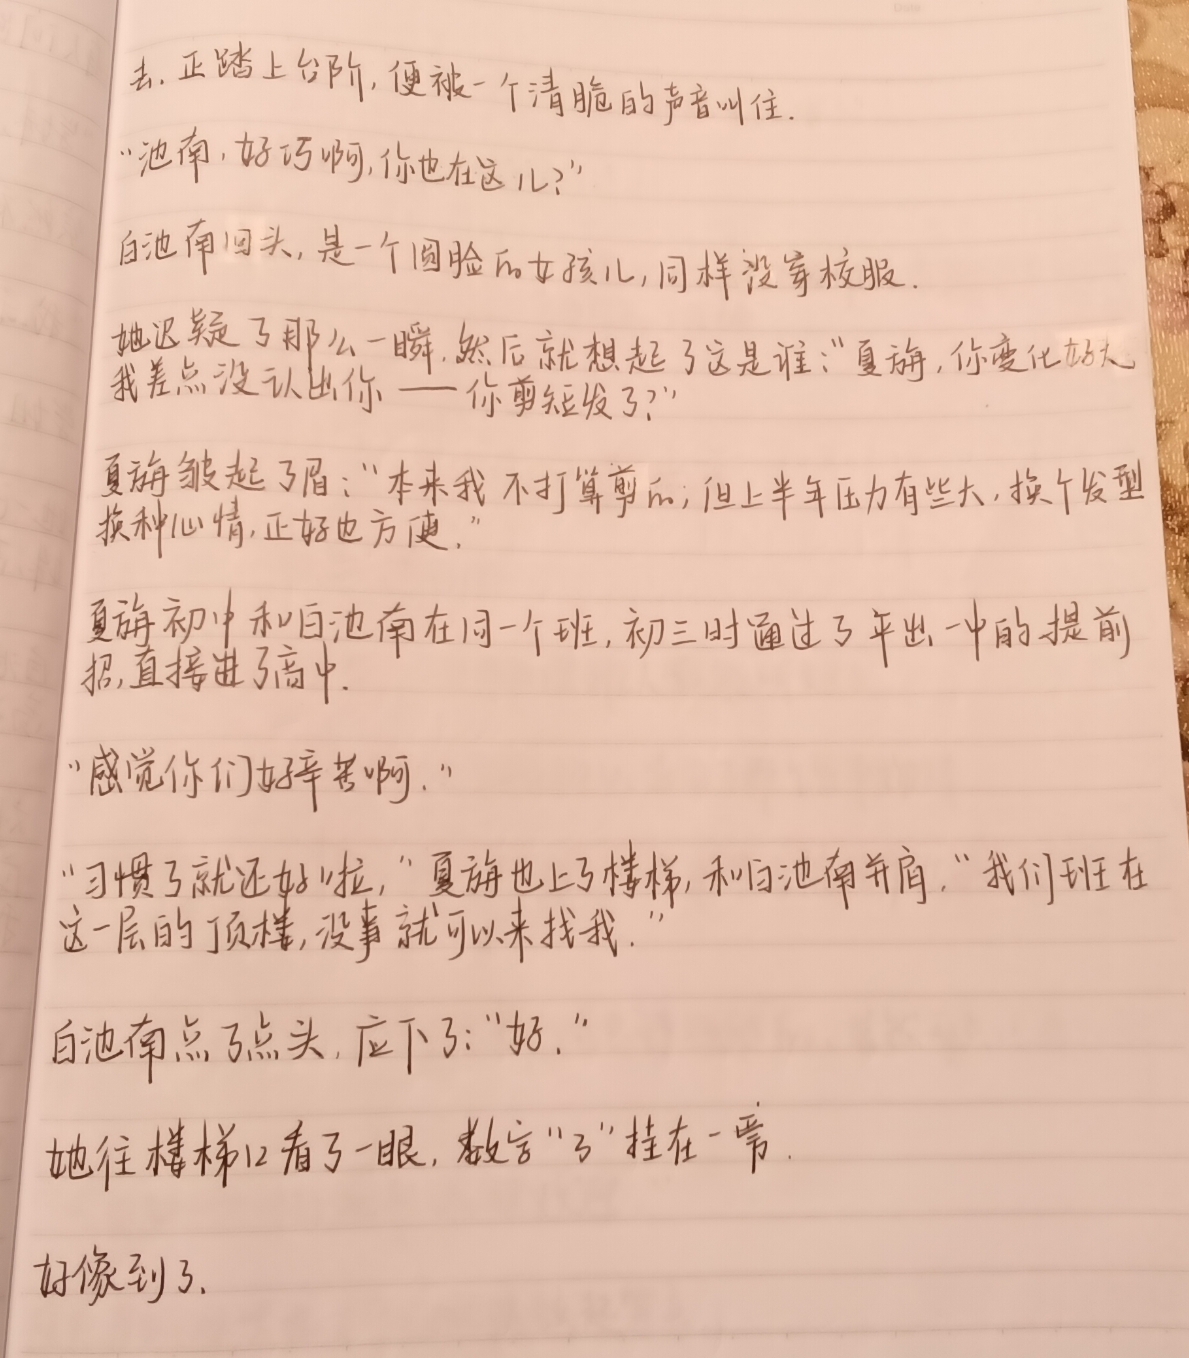 去.正踏上台阶,便被一个清脆的声音叫住.
“池南,好巧啊,你也在这儿?”
白池南回头,是一个圆脸的女孩儿,同样没穿校服.
她迟疑了那么一瞬.然后就想起了这是谁:“夏旃,你变化好大
我差点没认出你——你剪短发了?”
夏旃皱起了眉:“本来我不打算剪的;但上半年压力有些大,换个发型
换种心情,正好也方便.”
夏旃初中和白池南在同一个班,初三时通过了年出一中的提前
招,直接进了高中.
“感觉你们好辛苦啊.”
“习惯了就还好啦,”夏旃也上了楼梯,和白池南并肩.“我们班在
这一层的顶楼,没事就可以来找我.”
白池南点了点头,应下了:“好.”
她往楼梯口看了一眼,数字“3”挂在一旁.
好像到了.